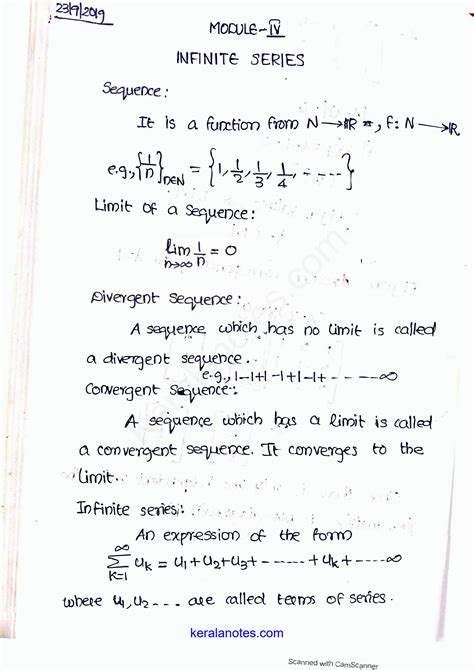 23/9/2019
MODULE-IV
INFINITE SERIES
Sequence:
It is a function from N→ℝ =, f: N→ℝ
e.g., {1/n}n∈N = {1, 1/2, 1/3, 1/4, - - - - -}
Limit of a Sequence:
lim n→∞ 1/n = 0
Divergent Sequence:
A sequence which has no limit is called
a divergent sequence.
e.g., 1-1+1-1+1-1+ - - - - - ∞
Convergent Sequence:
A sequence which has a limit is called
a convergent sequence. It converges to the
limit.
Infinite series:
An expression of the form
∞ ∑ k=1 uk = u1+u2+u3+ - - - - - - +uk+ - - - - ∞
where u1, u2 - - - are called terms of series.
keralanotes.com
keralanotes.com
Scanned with CamScanner